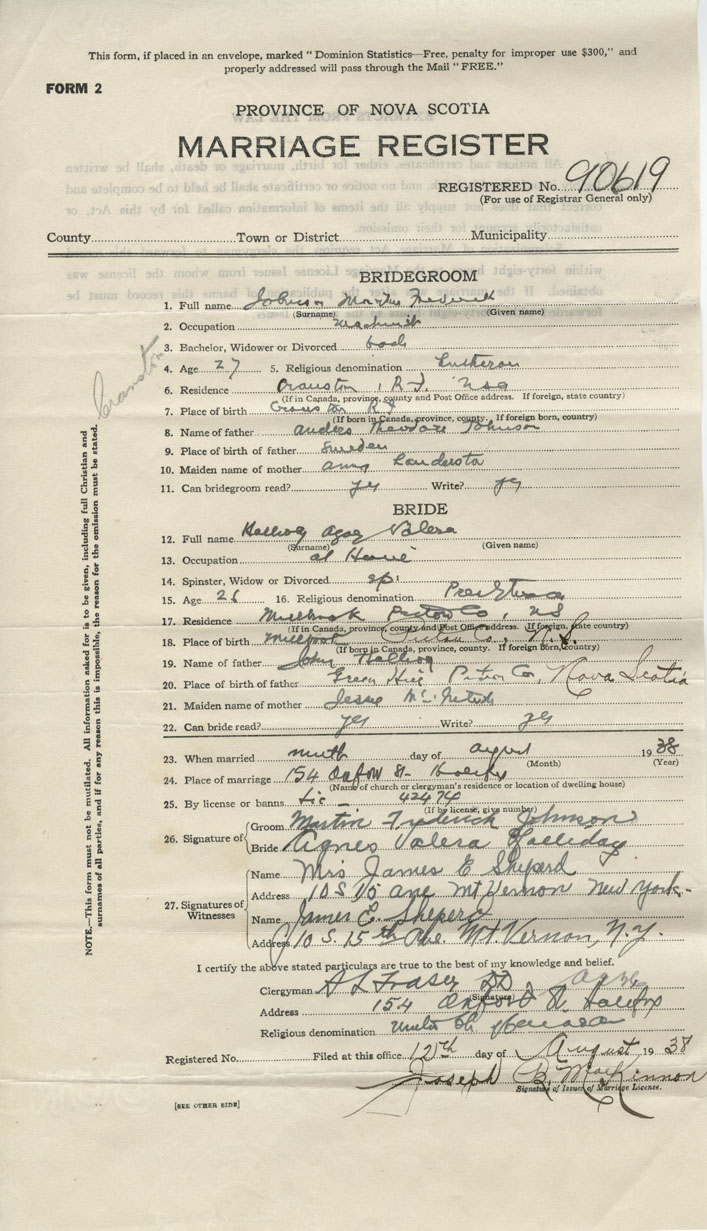 This form, if placed in an envelope, marked "Dominion Statistics—Free, penalty for improper use $300," and
properly addressed will pass through the Mail "FREE."
FORM 2
PROVINCE OF NOVA SCOTIA
MARRIAGE REGISTER
REGISTERED No. 90619
(For use of Registrar General only)
County Town or District Municipality
BRIDEGROOM
1. Full name Johnson Martin Frederick
(Surname) (Given name)
2. Occupation Machinist
3. Bachelor, Widower or Divorced bach
4. Age 27 5. Religious denomination Lutheran
6. Residence Cranston, R.I. USA
(If in Canada, province, county and Post Office address. If foreign, state country)
7. Place of birth Cranston R I
(If born in Canada, province, county. If foreign born, country)
8. Name of father Anders Theodore Johnson
9. Place of birth of father Sweden
10. Maiden name of mother
11. Can bridegroom read? yes Write? yes
BRIDE
12. Full name Valera
(Surname) (Given name)
13. Occupation at Home
14. Spinster, Widow or Divorced sp:
15. Age 26 16. Religious denomination
17. Residence Millbrook Pictou Co, NS
(If in Canada, province, county and Post Office address. If foreign, state country)
18. Place of birth Millbrook Pictou Co., N.S.
(If born in Canada, province, county. If foreign Born, Country)
19. Name of father John
20. Place of birth of father Green Hill Pictou Co, Nova Scotia
21. Maiden name of mother Jessie
22. Can bride read? yes Write? yes
23. When married ninth day of August 1938
(Month) (Year)
24. Place of marriage 154 Oxford St- Halifax
(Name of church or clergyman's residence or location of dwelling house)
25. By license or banns Lic - 42474
(If by license, give number)
26. Signature of Groom Martin Frederick Johnson
Bride Agnes Valera Halliday
27. Signatures of Witnesses
Name Mrs James E Sheperd
Address 10 S 15 ave Mt Vernon New York.
Name James E. Sheperd
Address 10 S. 15th Ave. Mt. Vernon, N.Y.
I certify the above stated particulars are true to the best of my knowledge and belief.
Clergyman A L Fraser DD
(Signature)
Address 154 Oxford St. Halifax
Religious denomination United Ch of Canada
Registered No. Filed at this office 12th day of August 1938
Joseph B. MacKinnon
Signature of Issuer of Marriage License.
[SEE OTHER SIDE]
Cranston
NOTE.—This form must not be mutilated. All information asked for is to be given, including full Christian and
surnames of all parties, and if for any reason this is impossible, the reason for the omission must be stated.